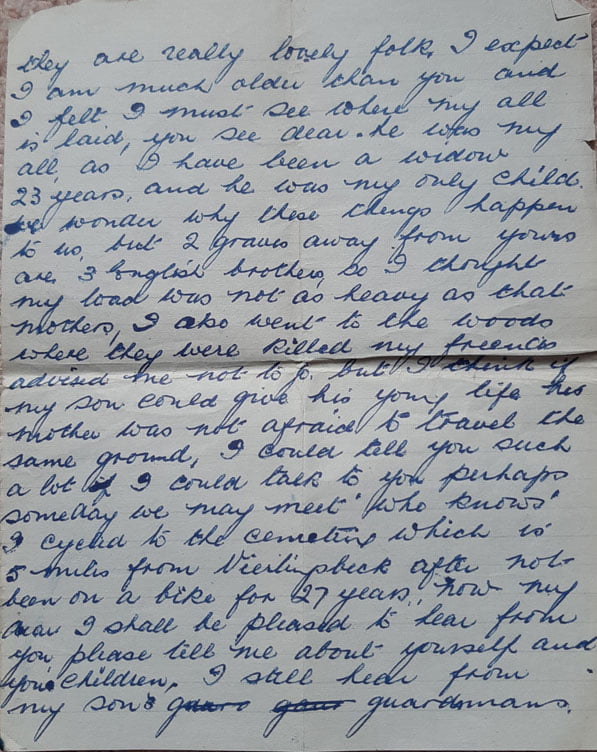 they are really lovely folk, I expect
I am much older than you and
I felt I must see where my all
is laid, you see dear. he was my
all, as I have been a widow
23 years, and he was my only child.
we wonder why these things happen
to us, but 2 graves away from yours
are 3 English brothers, so I thought
my load was not as heavy as that
mothers, I also went to the woods
where they were killed my friends
advised me not to go. but I think if
my son could give his young life his
mother was not afraid to travel the
same ground, I could tell you such
a lot if I could talk to you perhaps
someday we may meet "who knows"
I cycled to the cemetery which is
5 miles from Vierlingsbeck after not
been on a bike for 27 years, now my
dear I shall be pleased to hear from
you, please tell me about yourself and
your children, I still hear from
my son's guardsmans.